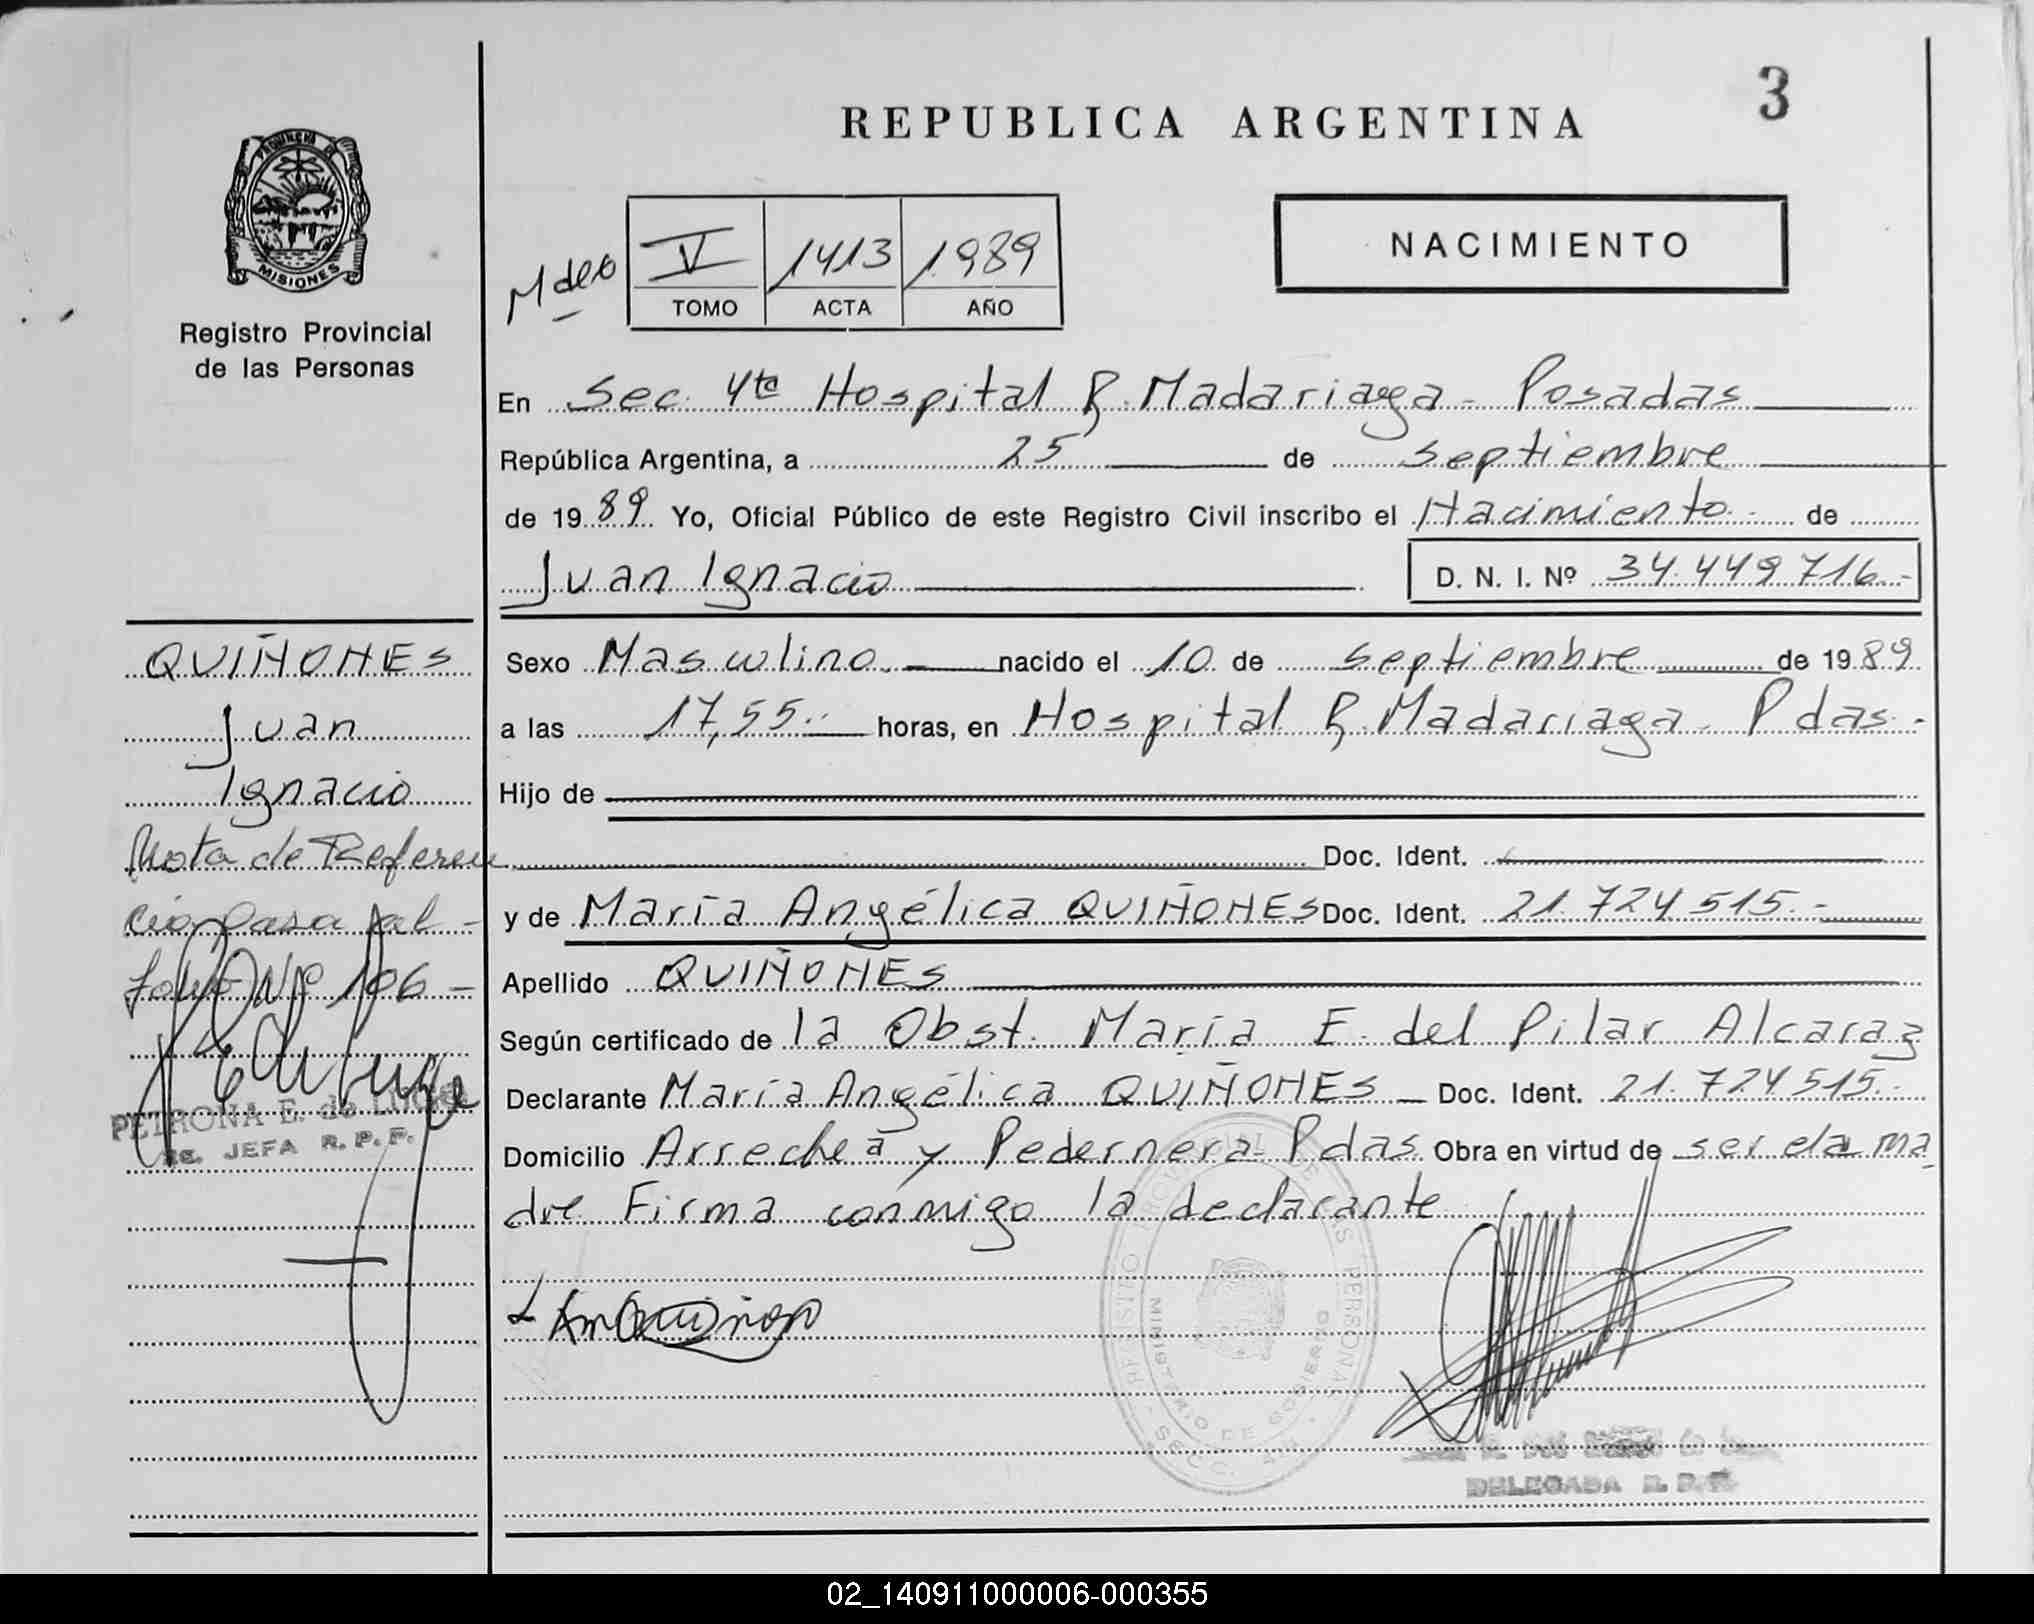 3
REPUBLICA ARGENTINA
PROVINCIA DE
MISIONES
Registro Provincial
de las Personas
NACIMIENTO
V 1413 1989
TOMO ACTA AÑO
En Sec. 4ta Hospital R. Madariaga - Posadas
República Argentina, a 25 de septiembre
de 1989. Yo, Oficial Público de este Registro Civil inscribo el Nacimiento de
Juan Ignacio D. N. I. Nº 34.449.716.-
QUIÑONES
Juan
Ignacio
Nota de Referen
cia pasa al -
folio Nº 106 -
PETRONA E. de
JEFA R. P. P.
Sexo Masculino nacido el 10 de septiembre de 1989
a las 17,55 horas, en Hospital R. Madariaga - Pdas.-
Hijo de
Doc. Ident.
y de María Angélica QUIÑONES Doc. Ident. 21.724.515.-
Apellido QUIÑONES
Según certificado de la Obst. María E. del Pilar Alcaraz
Declarante María Angélica QUIÑONES - Doc. Ident. 21.724.515.-
Domicilio Arrechea y Pedernera - Pdas. Obra en virtud de ser ela ma
dre Firma conmigo la declarante
REGISTRO PROVINCIAL DE LAS PERSONAS
MINISTERIO DE GOBIERNO
SECC. 4ta
DELEGADA R. P. P.
02_140911000006-000355